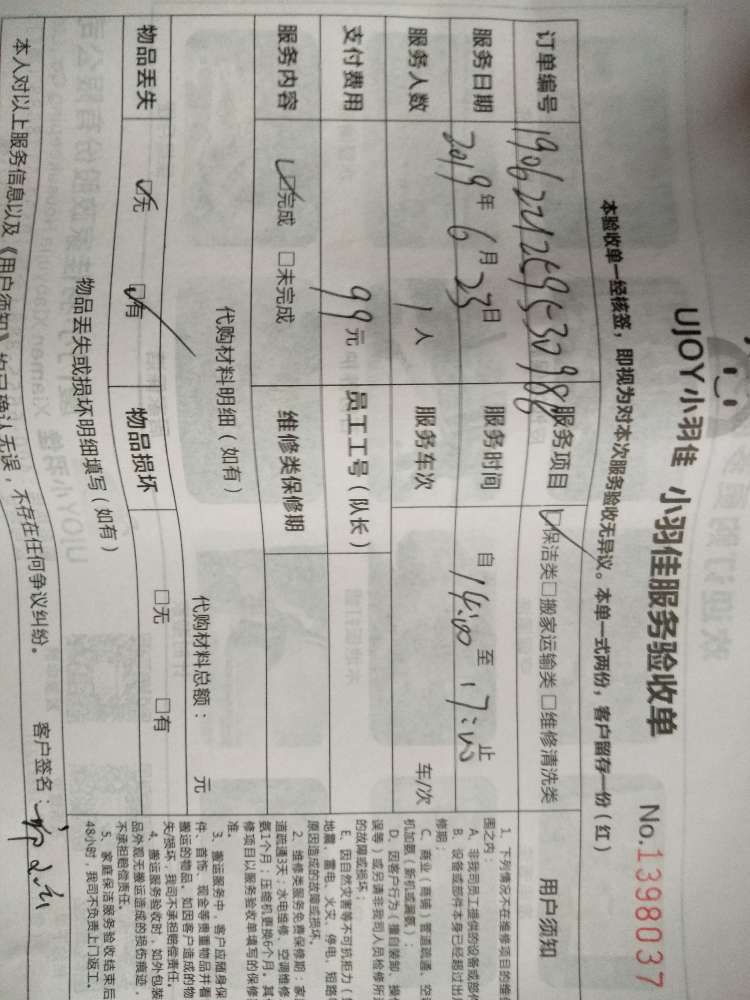 UJOY小羽佳 小羽佳服务验收单 No.1398037
本验收单一经核签，即视为对本次服务验收无异议。本单一式两份，客户留存一份（红）
订单编号 服务项目 ☑保洁类□搬家运输类□维修清洗类
服务日期 2019年6月23日 服务时间 自14:00至17:00止
服务人数 1人 服务车次 车/次
支付费用 99元 员工工号（队长）
服务内容 ☑完成 □未完成 维修类保修期
代购材料明细（如有） 代购材料总额： 元
物品丢失 ☑无 ☑有 物品损坏 □无 □有
物品丢失或损坏明细填写（如有）
本人对以上服务信息以及《用户须知》均已确认无误，不存在任何争议纠纷。 客户签名：
用户须知
1、下列情况不在维修项目的维
围之内：
A、非我司员工提供的设备或部件
B、设备或部件本身已经超过出
修期；
C、商业（商铺）管道疏通、空调
机加氨（新机或漏氨）；
D、因客户行为（擅自装卸、操作
误等）或另请非我司人员检修所造
的故障或损坏；
E、因自然灾害等不可抗拒力（如
地震、雷电、火灾、停电、短路
原因造成的故障或损坏。
2、维修类服务免费保修期：家庭
道疏通3天；水电维修、空调维修
氨1个月；压缩机更换6个月，其
修项目以服务验收单填写的保修
准。
3、搬运服务中，客户应随身保
件、首饰、现金等贵重物品并看
搬运的物品。如因客户造成的物
失/损坏，我司不承担赔偿责任。
4、搬运服务验收时，如外包装
品外观无搬运造成的损伤痕迹，
不承担赔偿责任。
5、家庭保洁服务验收结束后
48小时，我司不负责上门返工。